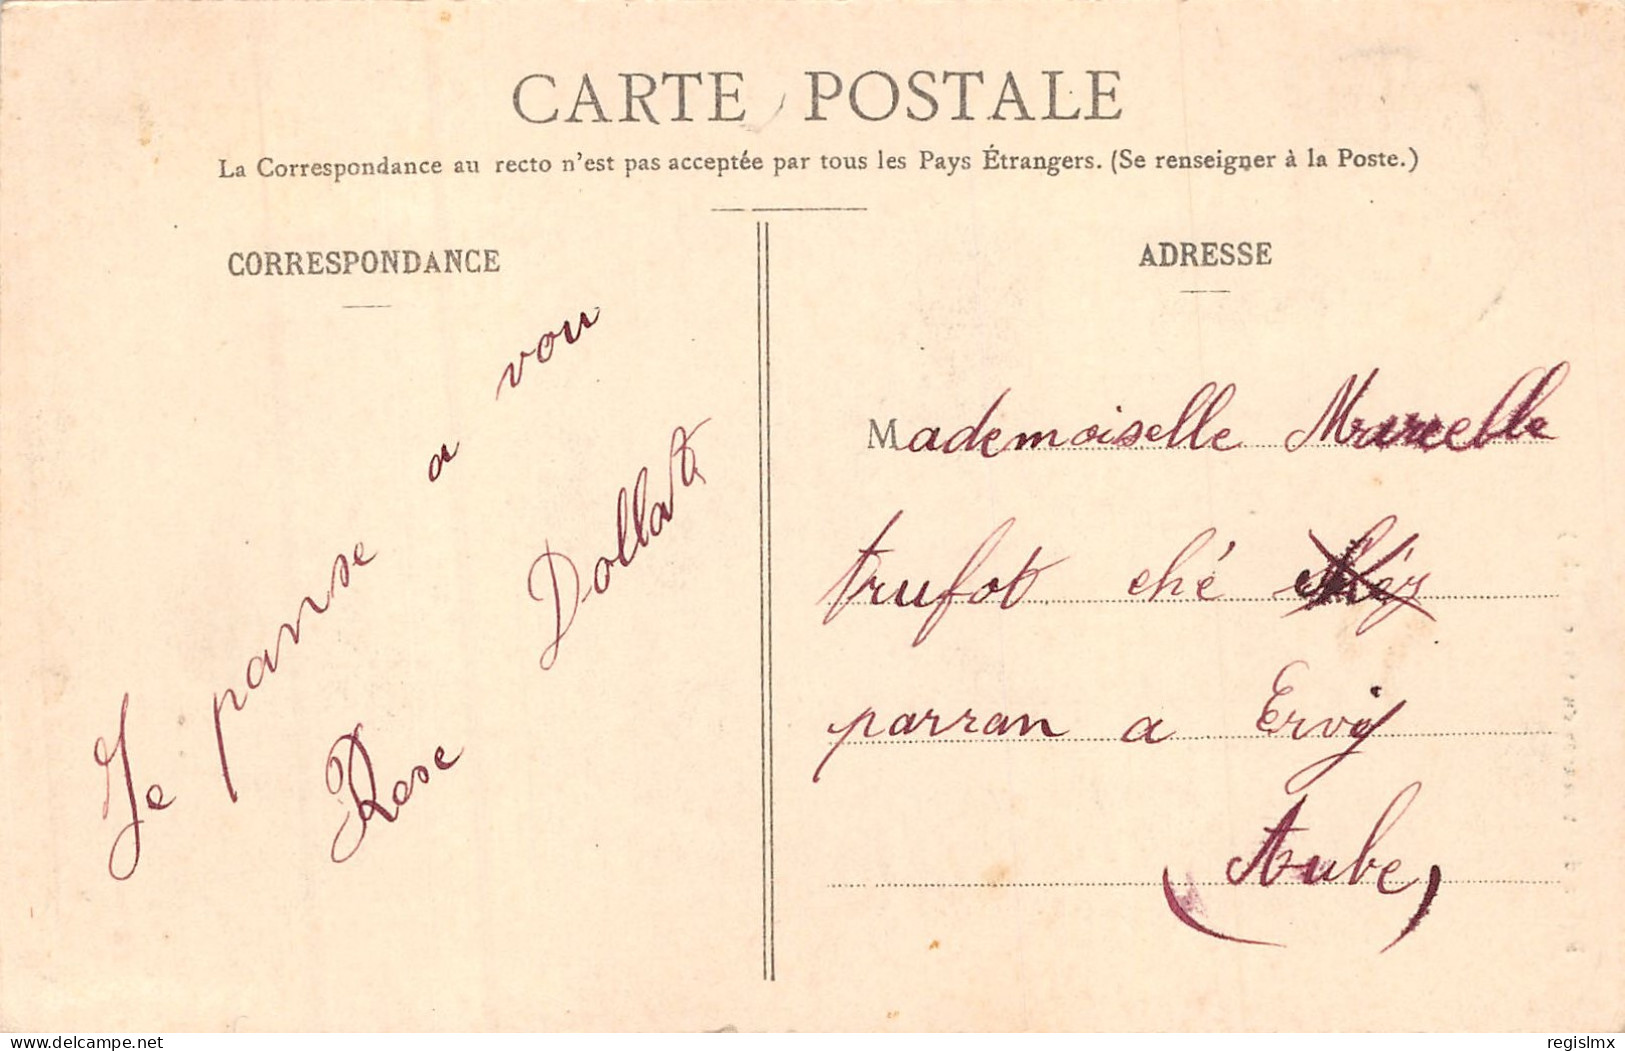 CARTE POSTALE
La Correspondance au recto n'est pas acceptée par tous les Pays Étrangers. (Se renseigner à la Poste.)
CORRESPONDANCE
Je panse a vou
Rose Dollat
ADRESSE
Mademoiselle Marcelle
trufot ché
parran a Ervy
(Aube)
delcampe.net
regislmx